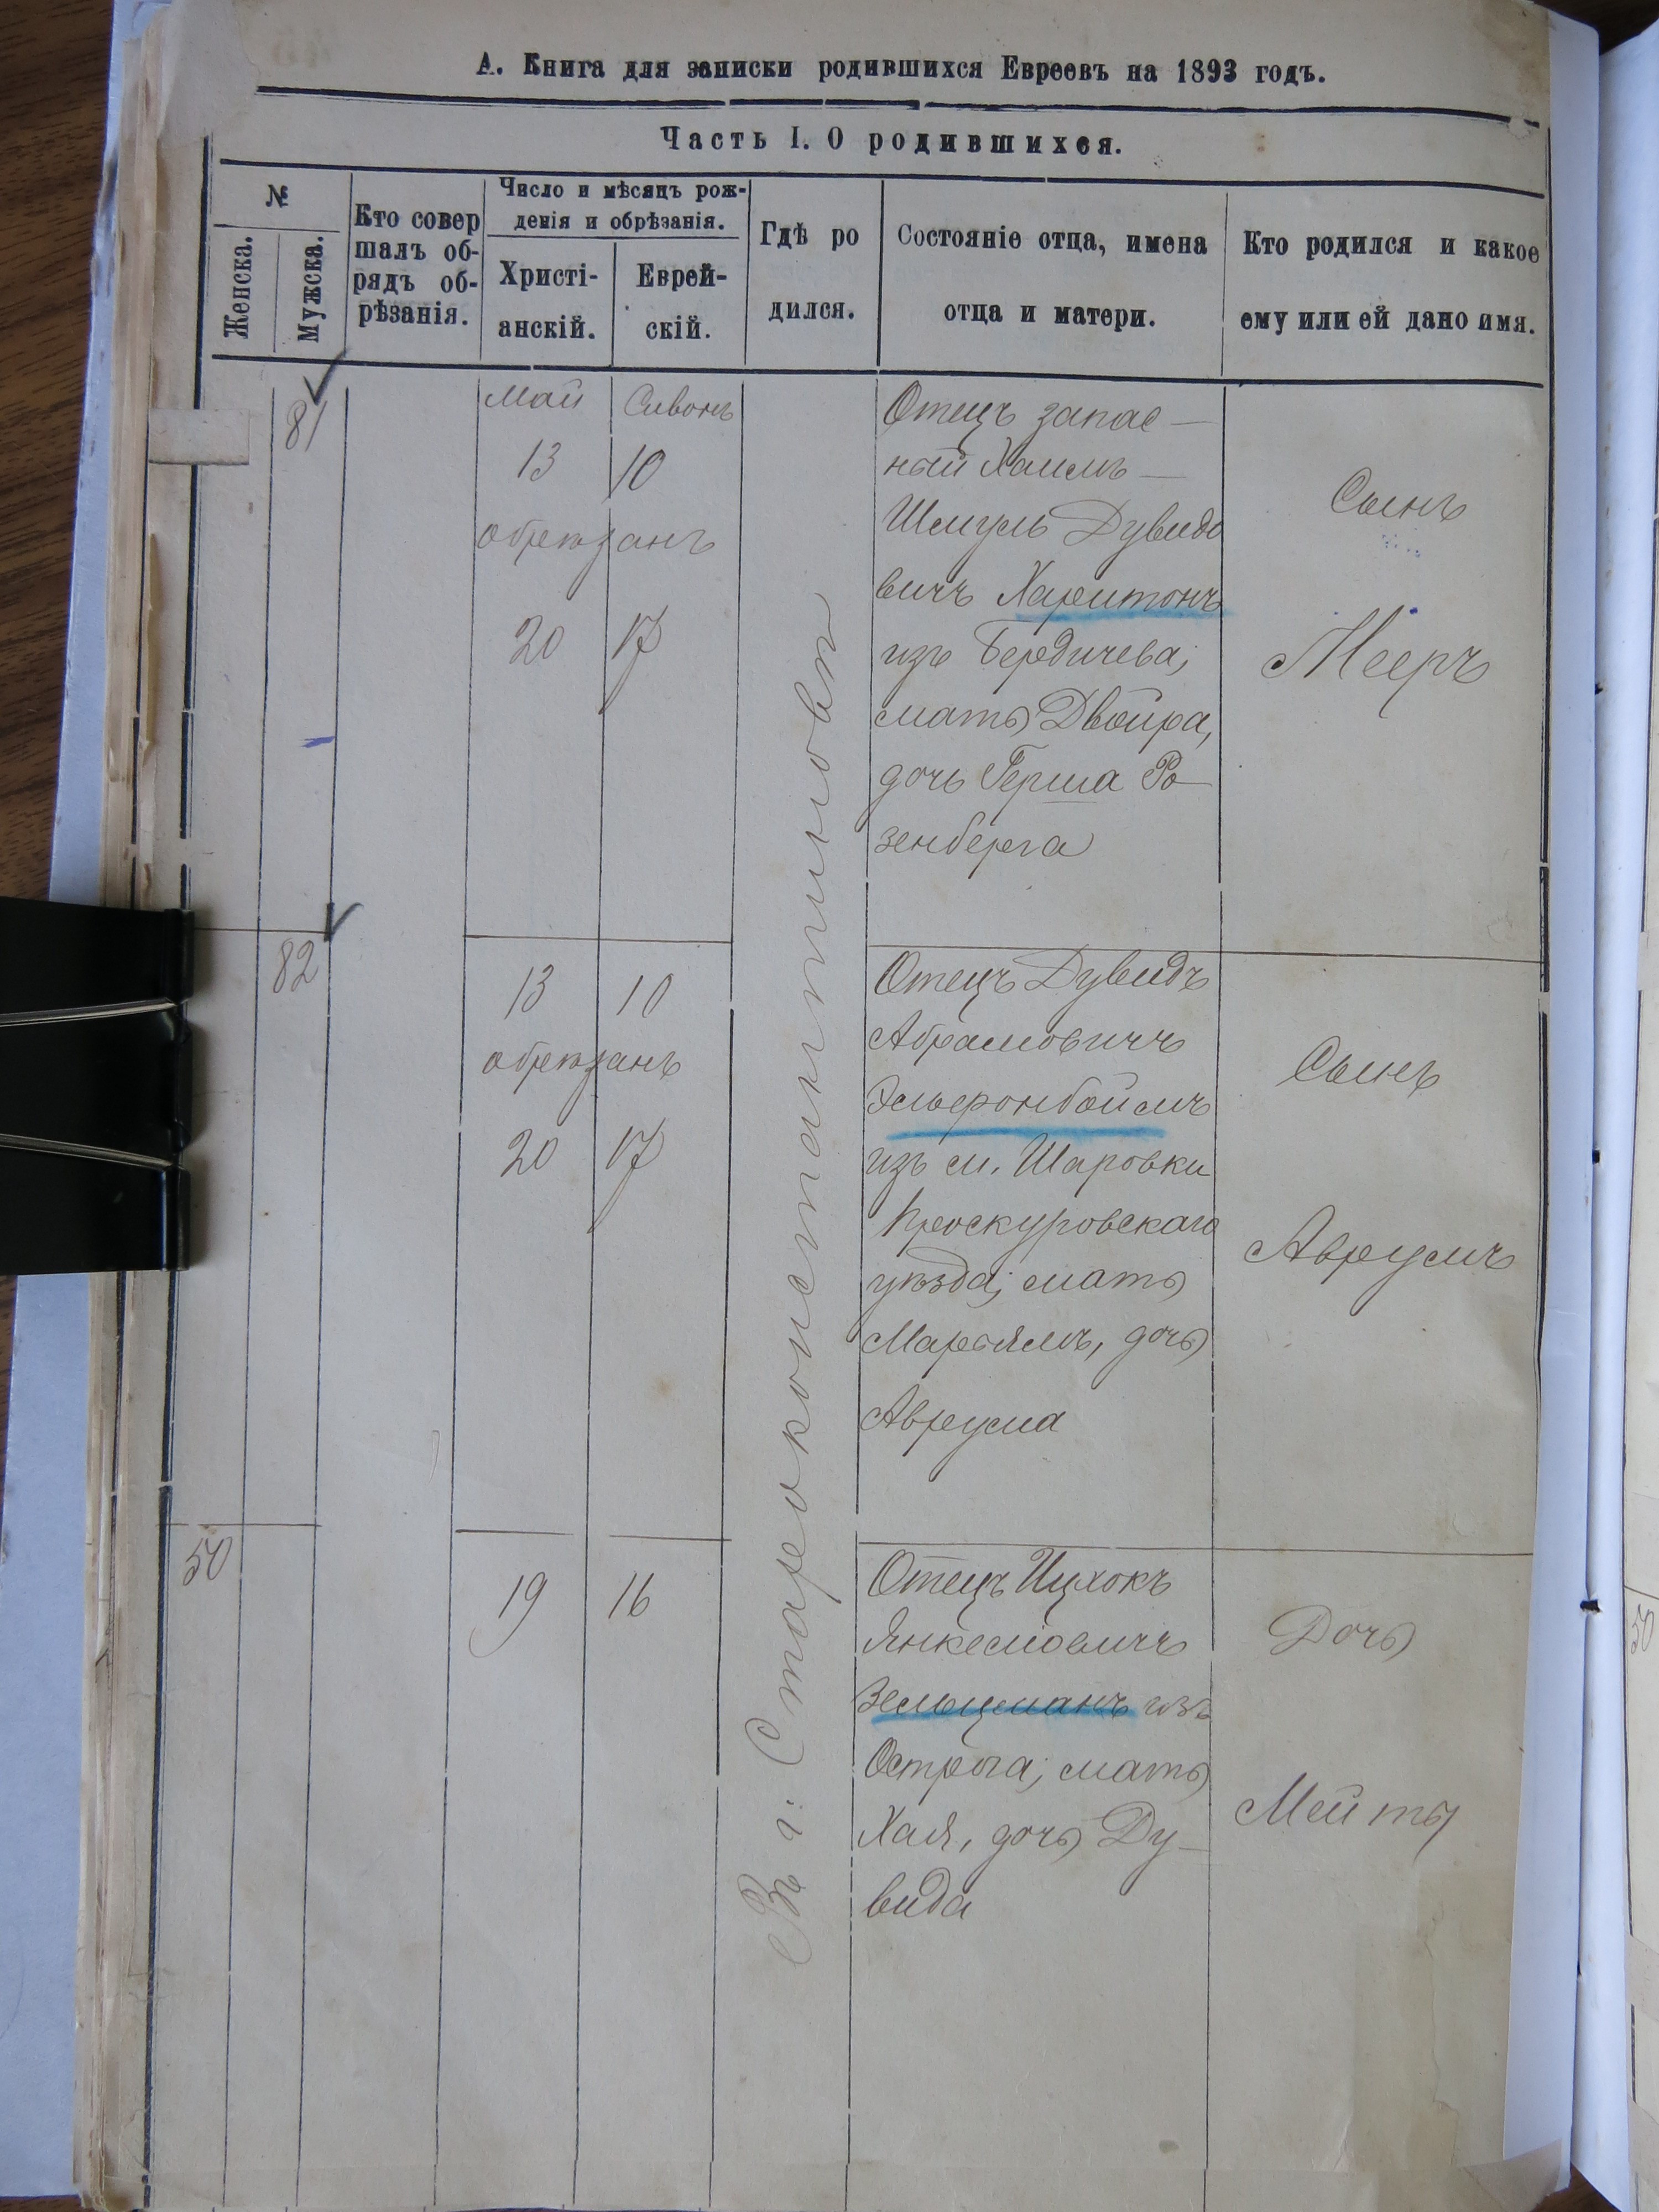 А. Книга для записки родившихся Евреевъ на 1893 годъ.
Часть I. О родившихся.
№
Женска.
Мужска.
Кто совер
шалъ об-
рядъ об-
рѣзанія.
Число и мѣсяцъ рож-
денія и обрѣзанія.
Христі-
анскій.
Еврей-
скій.
Гдѣ ро
дился.
Состояніе отца, имена
отца и матери.
Кто родился и какое
ему или ей дано имя.
81
Май
Сивонъ
13
10
обрѣзанъ
20
17
Отецъ запас—
ный Хаимъ—
Шмуль Дувидо
вичъ Харитонъ
изъ Бердичева;
мать Двойра,
дочь Герша Ро—
зенберга
Сынъ
Мееръ
Въ г. Староконстантиновъ
82
13
10
обрѣзанъ
20
17
Отецъ Дувидъ
Абрамовичъ
изъ м. Шаровки
Проскуровскаго
уѣзда; мать
Марьямъ, дочь
Авреума
Сынъ
Авреумъ
50
19
16
Отецъ Ицхокъ
Янкелиовичъ
Зельцманъ изъ
Острога; мать
Хая, дочь Ду—
вида
Дочь
Мейты
50